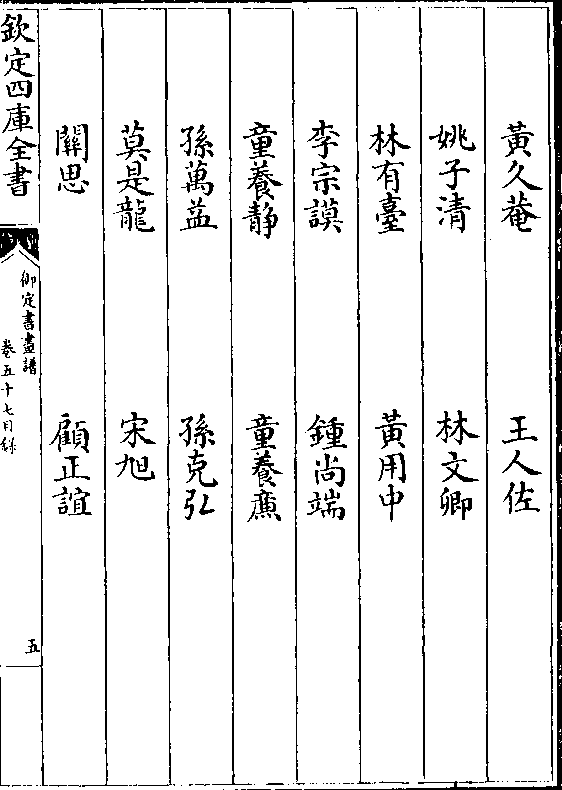 黃久菴 王人佐
姚子清 林文卿
林有臺 黃用中
李宗謨 鍾尚端
童養靜 童養廉
孫萬益 孫克弘
莫是龍 宋旭
關思 顧正誼
欽定四庫全書
御定書畫譜
卷五十七目錄
五